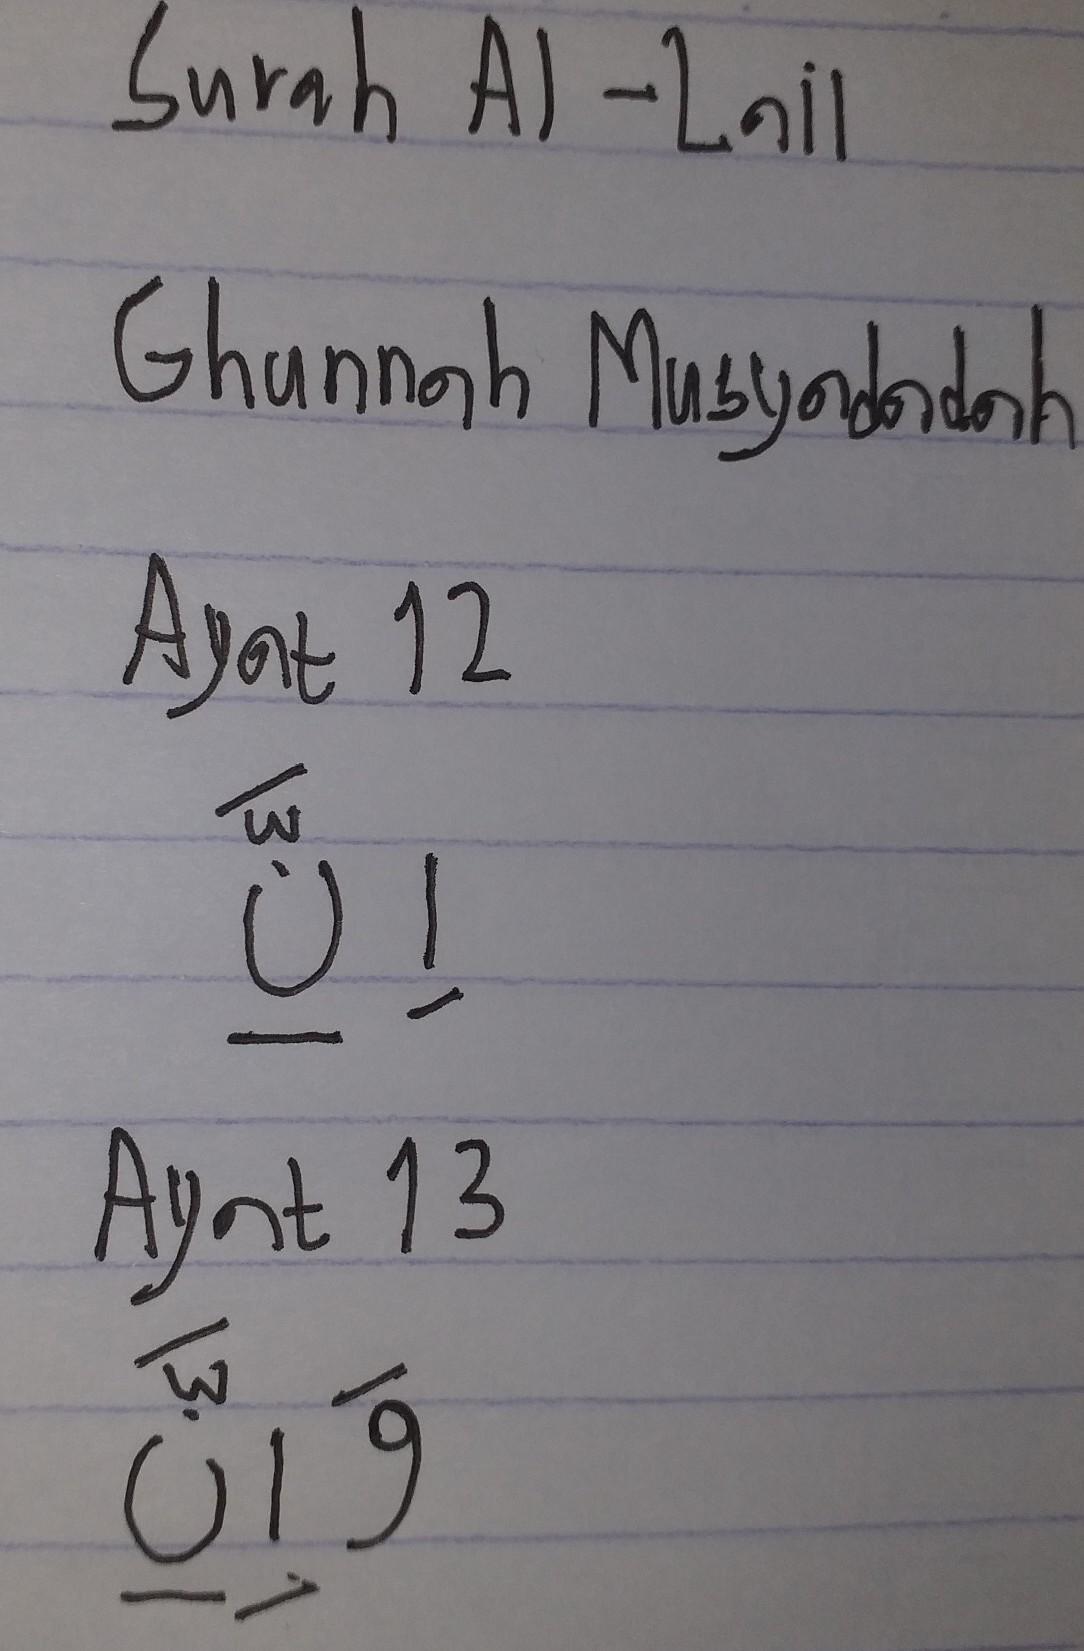 Surah Al-Lail
Ghunnah Musyadadah
Ayat 12
اِنَّ
Ayat 13
وَاِنَّ